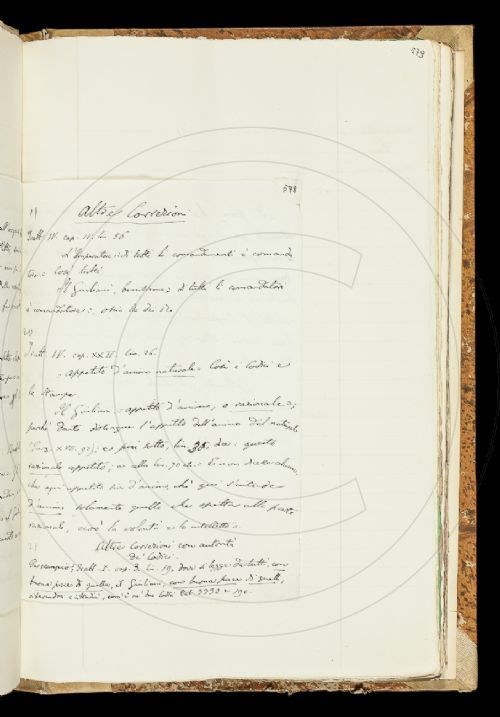 579
578
1)
Altre Correzioni
Tratt. IV. cap. IV. lin. 56
L'Imperatore: di tutti li comandamenti è comanda
tore = Così tutti.
Il Giuliani, benissimo = di tutti li comandatori
è comandatore =
2)
Tratt. IV. cap. XXII. lin. 26.
= appetito d'animo naturale = Così i Codici e
le stampe
Il Giuliani = appetito d'animo, o razionale =;
perchè Dante distingue l'appetito dell'animo dal naturale
(Purg. XVII. 92); e più sotto, lin. 35, dice: questo
razionale appetito; e alla lin. 70 ec. = E non dica alcuno,
che ogni appetito sia d'animo, chè qui s'intende
d'animo solamente quello che spetta alla parte
razionale, cioè la volontà e lo intelletto =.
2)
Altre Correzioni con autorità
de' Codici.
Per esempio; Tratt. I. cap. 3. lin. 19, dove si legge da tutti, con
buona pace di questo, il Giuliani, con buona pace di quelli,